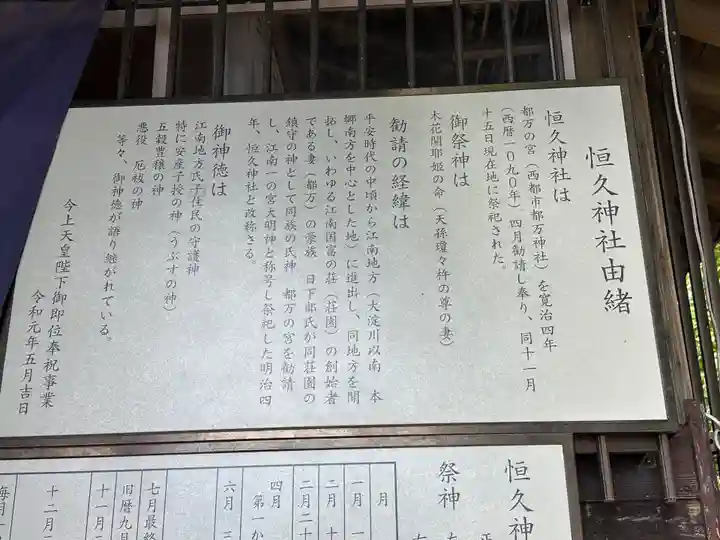 恒久神社由緒
恒久神社は
都万の宮（西都市都万神社）を寛治四年
（西暦一〇九〇年）四月勧請し奉り、同十一月
十五日現在地に祭祀された。
御祭神は
木花開耶姫の命（天孫瓊々杵の尊の妻）
勧請の経緯は
平安時代の中頃から江南地方（大淀川以南　本
郷南方を中心とした地）に進出し、同地方を開
拓し、いわゆる江南国富の荘（荘園）の創始者
である妻（都万）の豪族　日下部氏が同荘園の
鎮守の神として同族の氏神　都万の宮を勧請
し、江南一の宮大明神と称号し祭祀した明治四
年、恒久神社と改称さる。
御神徳は
江南地方氏子住民の守護神
特に安産子授の神（うぶすの神）
五穀豊穣の神
悪役、厄祓の神
等々、御神徳が語り継がれている。
今上天皇陛下御即位奉祝事業
令和元年五月吉日
恒久神
祭神
月
一月　一
二月　十
二月二十
四月
第一か
六月　三
七月最終
旧暦九月
十一月二
十二月二
毎月一